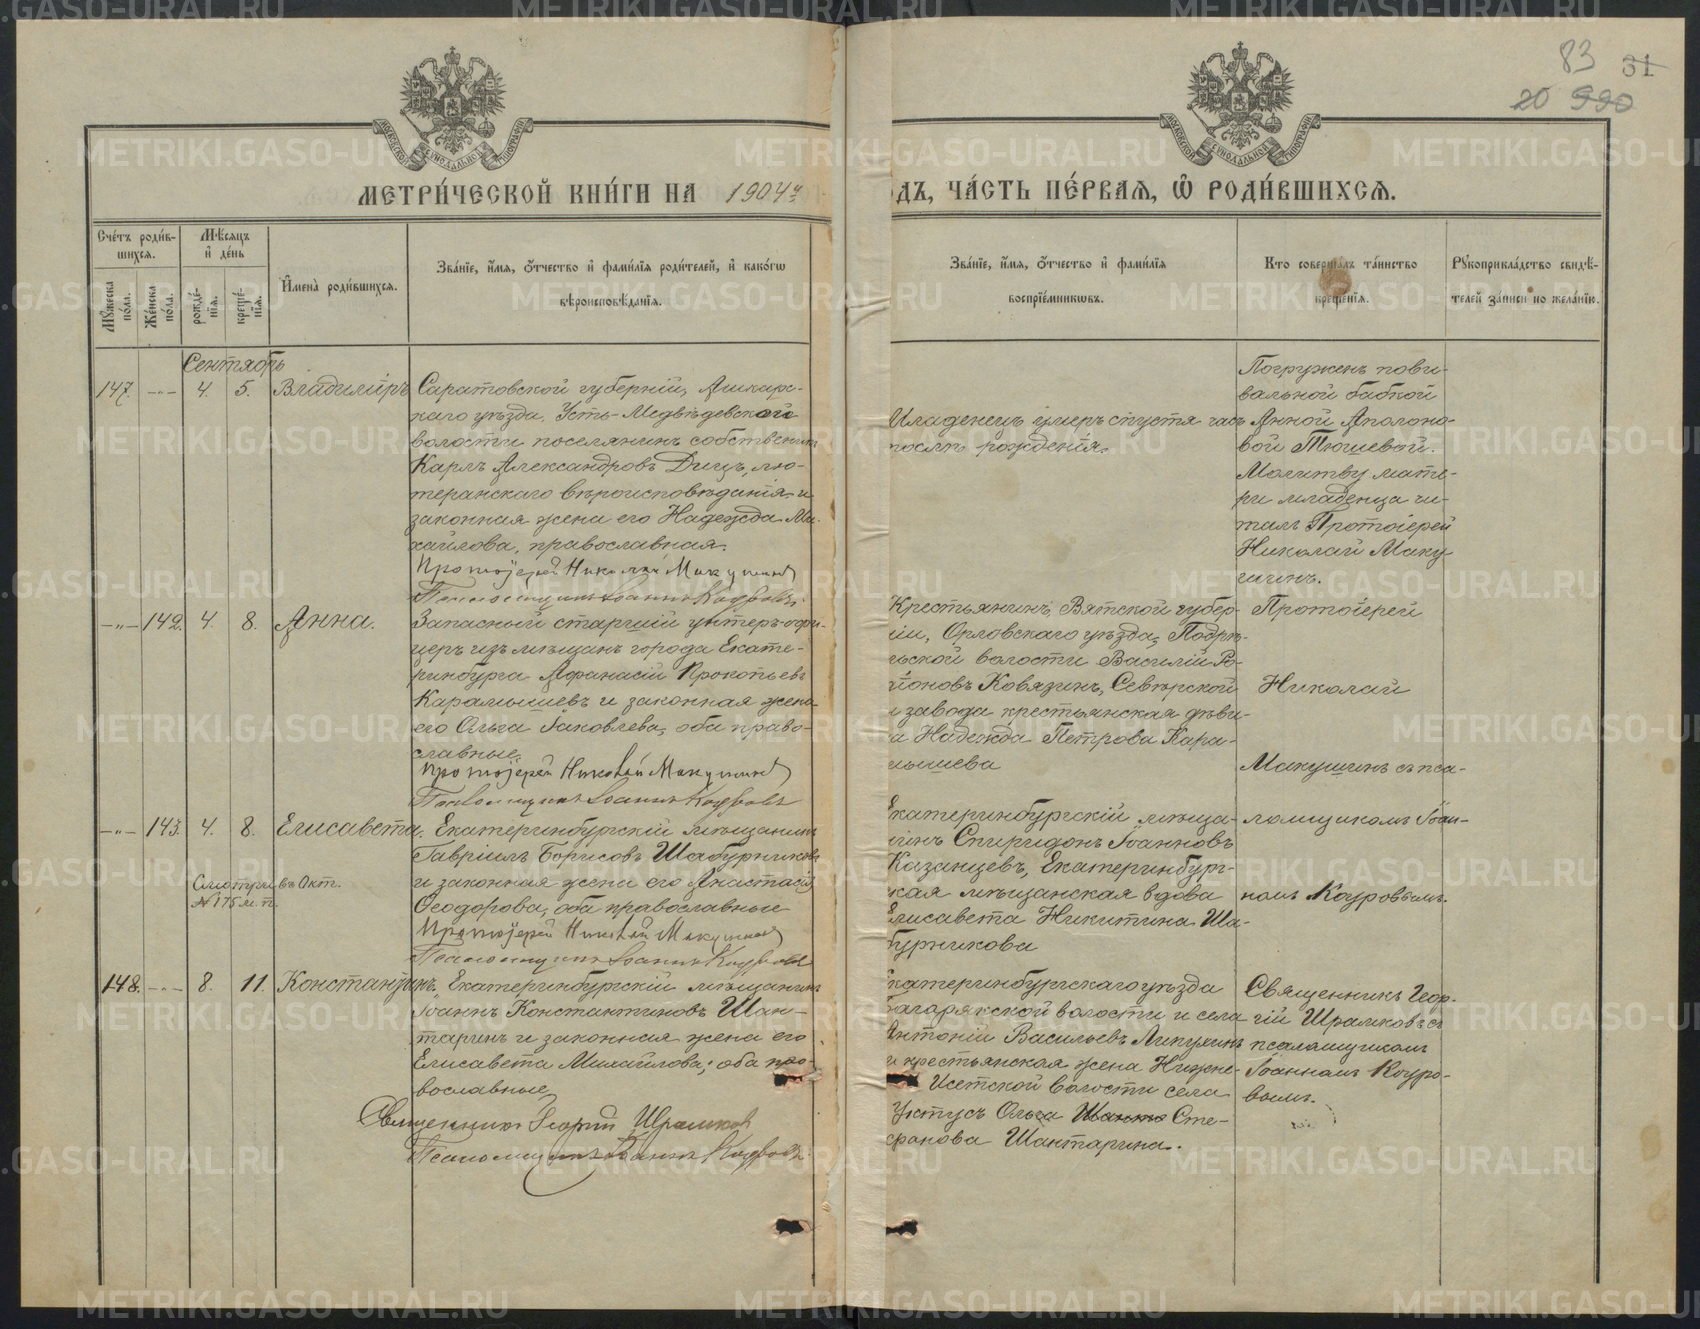 83 31
20 990
МЕТРИ́ЧЕСКОЙ КНИ́ГИ НА 1904й
ОДЪ, ЧА́СТЬ ПЕ́РВАЯ, Ѡ РОДИ́ВШИХСЯ.
Сче́тъ роди́в-
шихся.
Мꙋ́жеска по́ла.
Же́нска по́ла.
Мѣ́сяцъ
и҆ де́нь
рожде́-
нїя.
креще́-
нїя.
И҆мена̀ роди́вшихся.
Зва́нїе, и҆́мя, ѻ҆́тчество и҆ фами́лїя роди́телей, и҆ како́гѡ
вѣроисповѣ́данїя.
Зва́нїе, и҆́мя, ѻ҆́тчество и҆ фами́лїя
воспрїе́мникѡвъ.
Кто соверша́лъ та́инство
креще́нїя.
Рꙋкоприкла́дство свидѣ́-
телей за́писи по жела́нїю.
Сентябрь
147. -„- 4. 5. Владиміръ
Саратовской губерніи,
каго уѣзда, Усть-Медвѣдевской
волости поселянинъ собственникъ
Карлъ Александровъ Дицъ, лю-
теранскаго вѣроисповѣданія и
законная жена его Надежда Ми-
хайлова, православная.
Протоіерей Николай Макушинъ
Псаломщикъ Іоаннъ Коуровъ.
Младенецъ умеръ спустя часъ
послѣ рожденія.
Погруженъ пови-
вальной бабкой
Анной Аполоно-
вой
Молитву мате-
ри младенца чи-
талъ Протоіерей
Николай Маку
шинъ.
-„- 142. 4. 8. Анна.
Запасный старшій унтеръ-офи-
церъ изъ мѣщанъ города Екате-
ринбурга Афанасій Прокопьевъ
Карамышевъ и законная жена
его Ольга Іаковлева, оба право-
славные.
Протоіерей Николай Макушинъ
Псаломщикъ Іоаннъ Коуровъ
Крестьянинъ Вятской губер-
ніи, Орловскаго уѣзда, Подрѣ-
льской волости Василій Ро-
діоновъ Ковязинъ, Севѣрской
завода крестьянская дѣви-
ца Надежда Петрова Кара-
мышева
Протоіерей
Николай
Макушинъ съ пса-
-„- 143. 4. 8. Елисавета.
Смотри въ Окт.
№ 175 м. п.
Екатеринбургскій мѣщанинъ
Гавріилъ Борисовъ Шабурниковъ
и законная жена его Анастасія
Ѳеодорова, оба православные
Протоіерей Николай Макушинъ
Псаломщикъ Іоаннъ Коуровъ
Екатеринбургскій мѣща-
нинъ Спиридонъ Іоанновъ
Казанцевъ, Екатеринбург-
ская мѣщанская вдова
Елисавета Никитина Ша-
бурникова
ломщикомъ Іоан-
номъ Коуровымъ.
148. -„- 8. 11. Константинъ.
Екатеринбургскій мѣщанинъ
Іоаннъ Константиновъ Шан-
таринъ и законная жена его
Елисавета Михайлова, оба пра-
вославные
Священникъ Георгій Шрамковъ
Псаломщикъ Іоаннъ Коуровъ.
Екатеринбургскаго уѣзда
Багарякской волости и села
Антоній Васильевъ Липухинъ
и крестьянская жена Нижне-
Исетской волости села
Уктусъ Ольга Сте-
фанова Шантарина.
Священникъ Геор-
гій Шрамковъ съ
псаломщикомъ
Іоанномъ Коуро-
вымъ.
METRIKI.GASO-URAL.RU